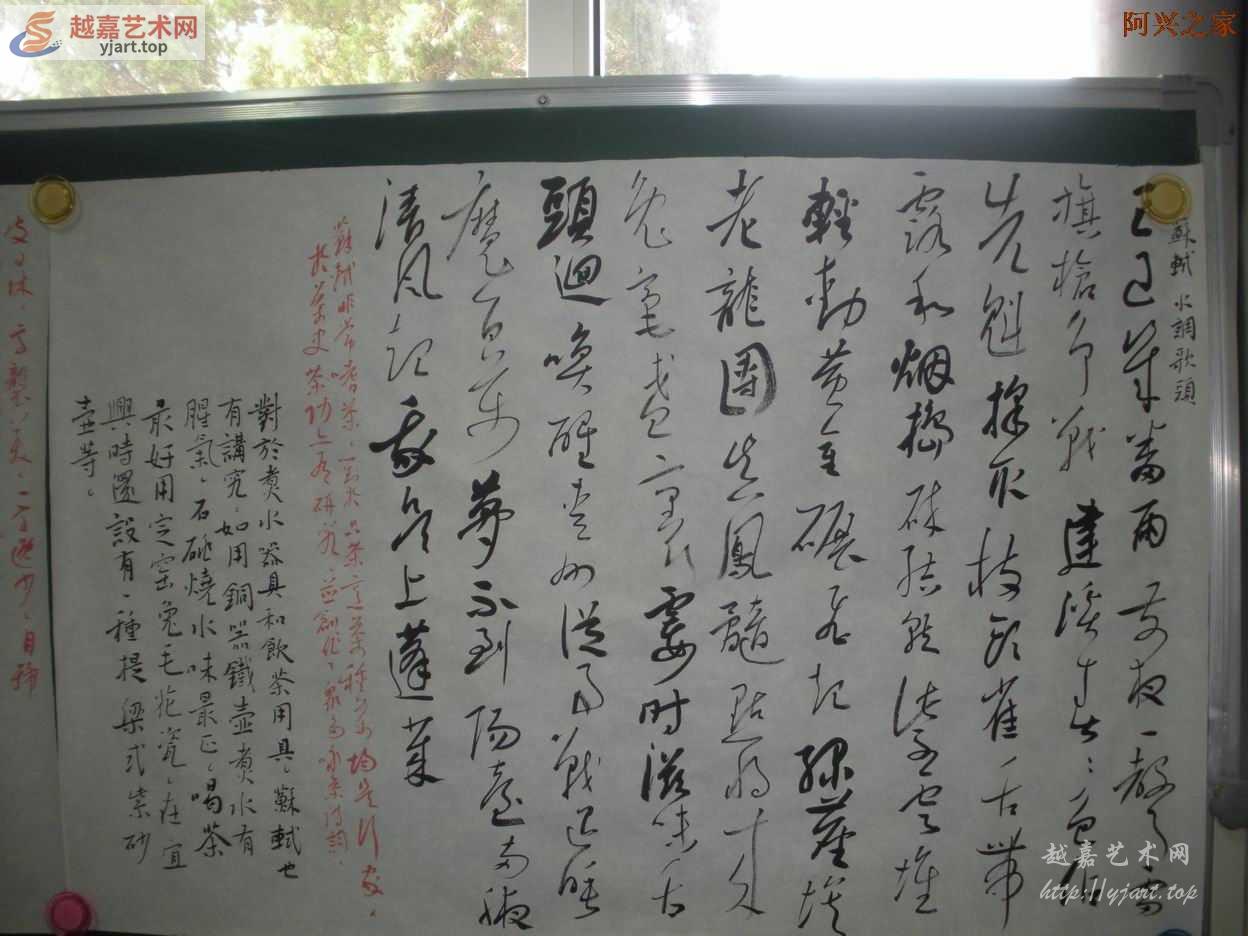 越嘉艺术网
yjart.top
阿兴之家
蘇軾 水調歌頭
已過幾番雨 前夜一聲雷
旗槍爭戰 建溪春色佔
先魁 採取枝頭雀舌帶
露和烟搗碎 結就紫雲堆
輕動黃金碾 飛起綠塵埃
老龍團真鳳髓 點將來
兔毫盞裏 霎時滋味舌
頭迴 喚醒青州從事 戰退睡
魔百萬 夢不到陽臺 兩腋
清風起 我欲上蓬萊
蘇軾非常嗜茶，對水品茶茶種均是行家，
於茶史茶功亦有研究，並創作了眾多詠茶詩詞。
對於煮水器具和飲茶用具，蘇軾也
有講究，如用銅器鐵壺煮水有
腥氣，石銚燒水味最正，喝茶
最好用定窑兔毛花瓷，在宜
興時還設有一種提梁式紫砂
壺等。
皮日休，字襲美，一字逸少，自號
越嘉艺术网
http://yjart.top